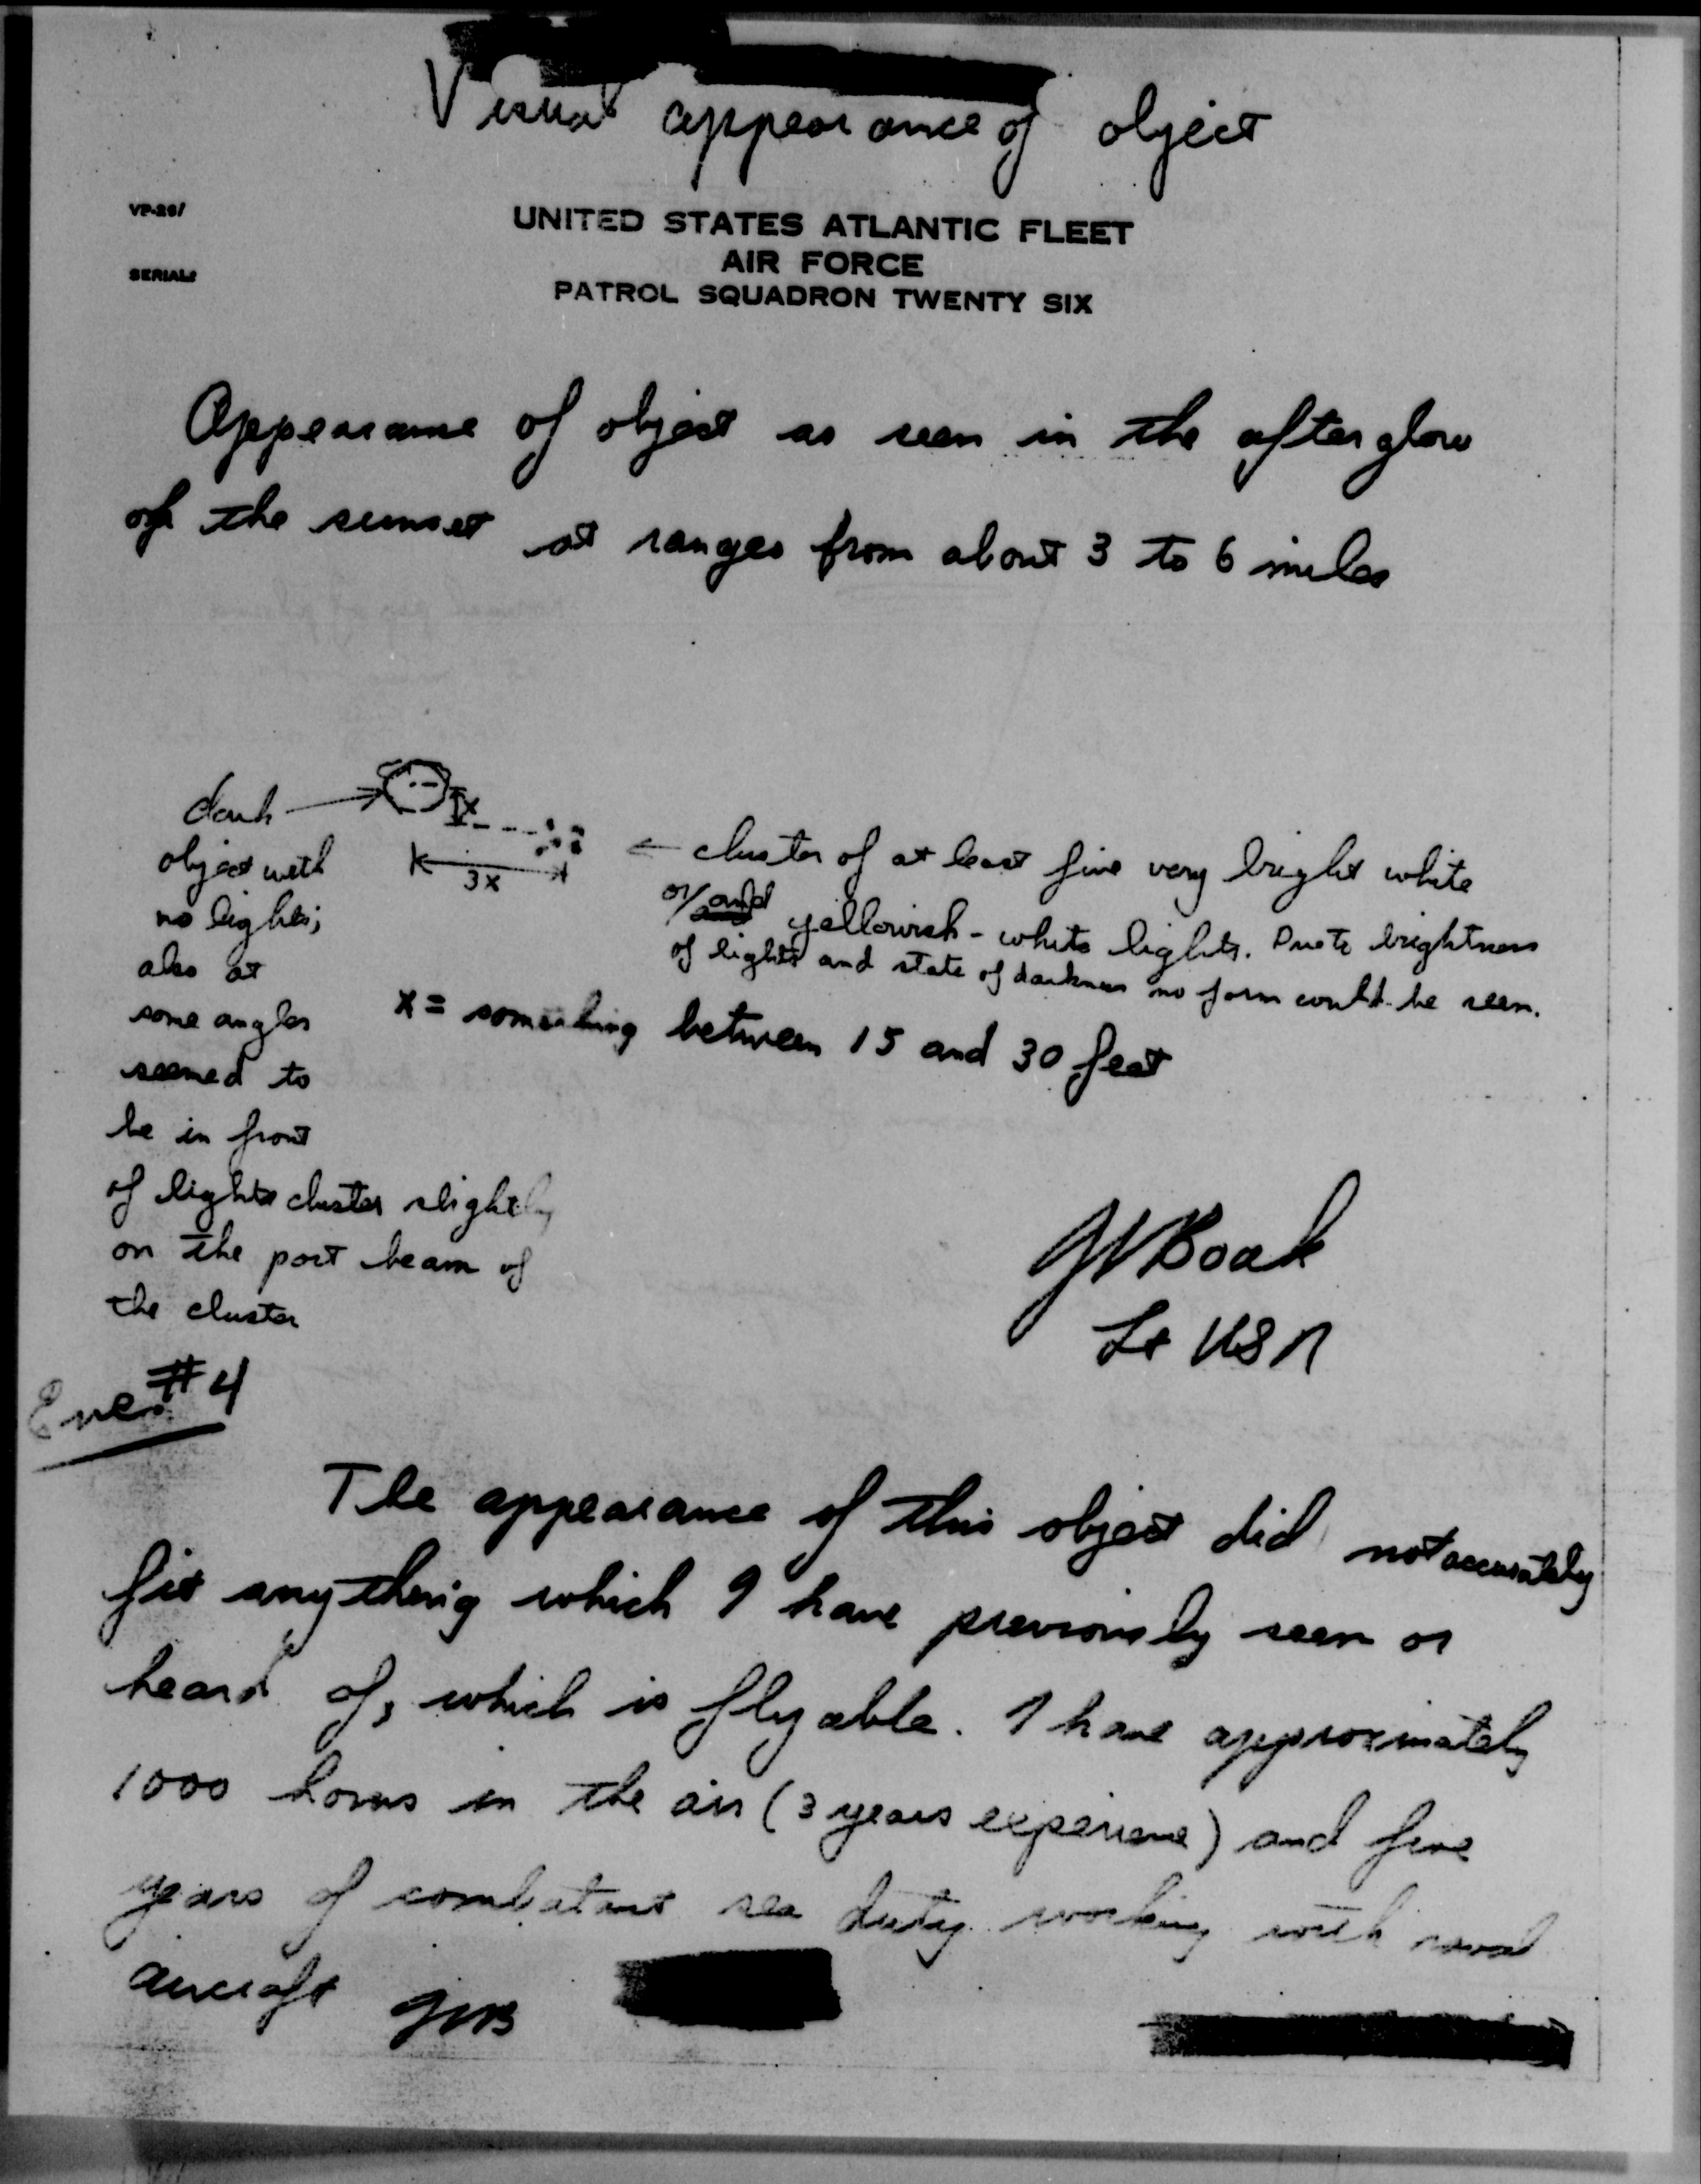 Visual appearance of object
VP-26/
UNITED STATES ATLANTIC FLEET
AIR FORCE
SERIAL:
PATROL SQUADRON TWENTY SIX
Appearance of object as seen in the afterglow
of the sunset at ranges from about 3 to 6 miles
dark
object with
no lights;
also at
some angles
seemed to
be in front
of lights cluster slightly
on the port beam of
the cluster
x
3x
← cluster of at least five very bright white
or/and yellowish-white lights. Due to brightness
of lights and state of darkness no form could be seen.
x = something between 15 and 30 feet
JVBoak
Lt USN
Encl #4
The appearance of this object did not accurately
fit anything which I have previously seen or
heard of, which is flyable. I have approximately
1000 hours in the air (3 years experience) and five
years of combatant sea duty working with naval
aircraft JVB